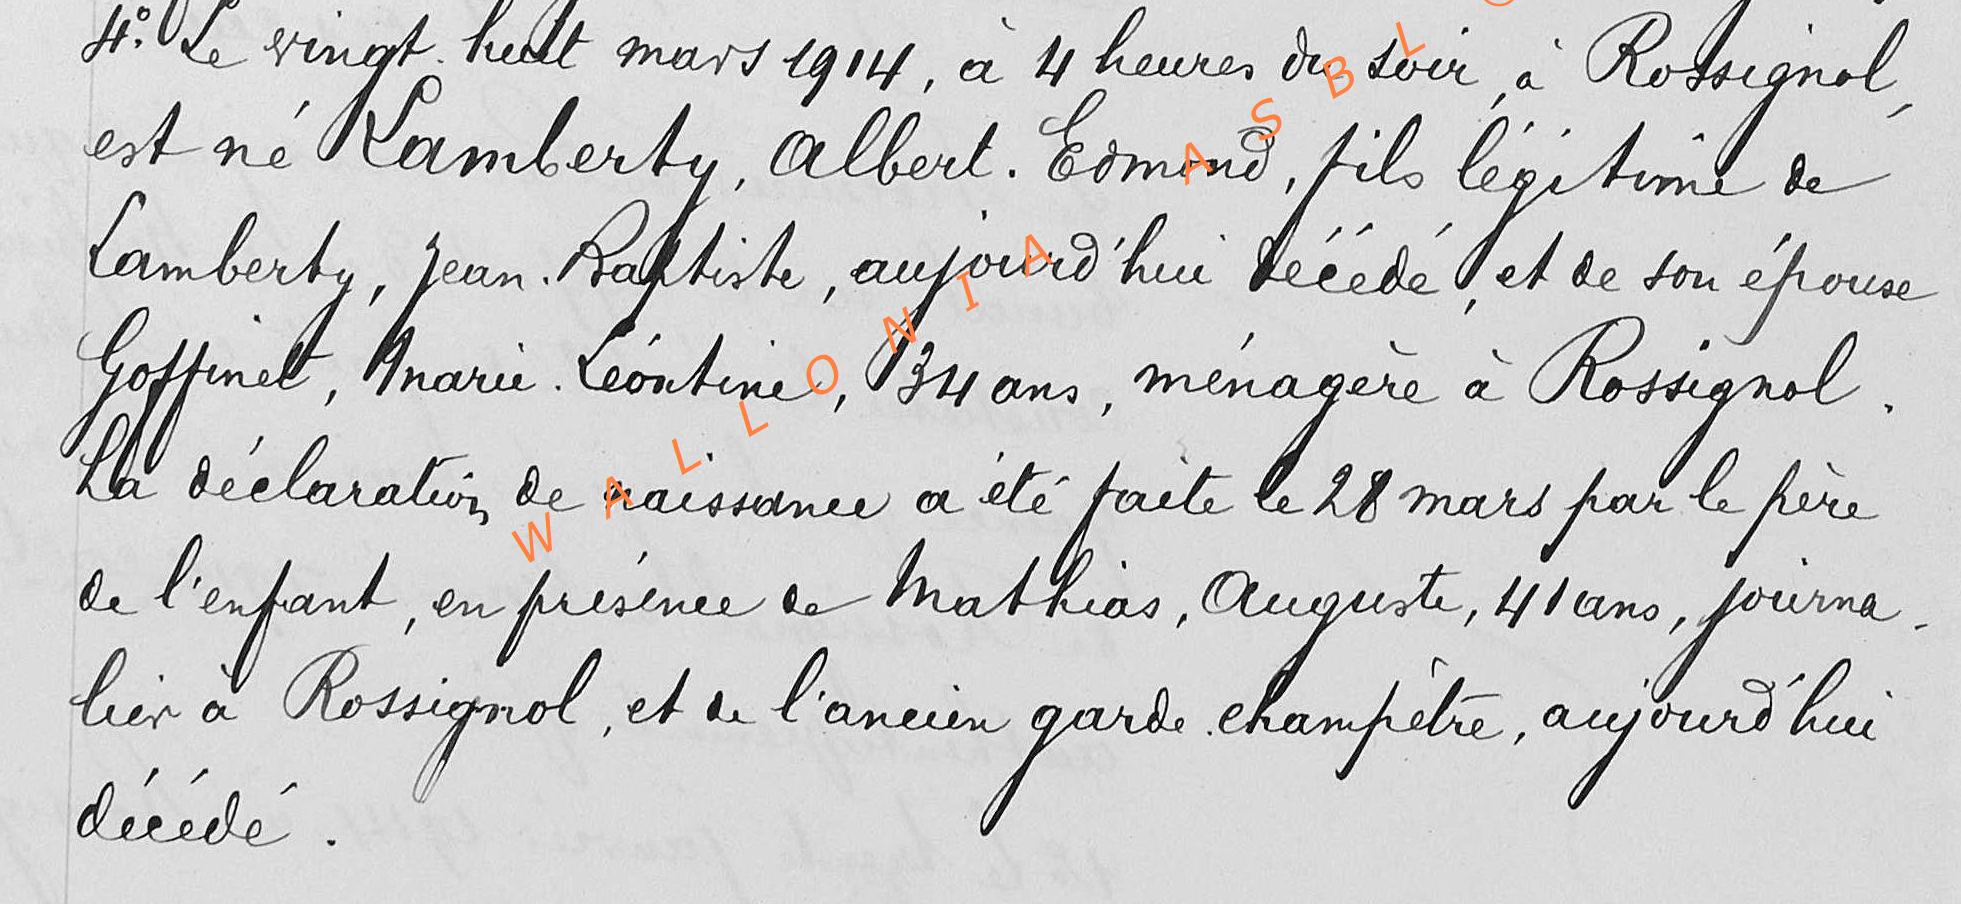 4°. Le vingt-huit mars 1914, à 4 heures du soir, à Rossignol,
est né Lamberty, Albert-Edmond, fils légitime de
Lamberty, Jean-Baptiste, aujourd'hui décédé, et de son épouse
Goffinet, Marie-Léontine, 34 ans, ménagère à Rossignol.
La déclaration de naissance a été faite le 28 mars par le père
de l'enfant, en présence de Mathias, Auguste, 41 ans, journa-
lier à Rossignol, et de l'ancien garde-champêtre, aujourd'hui
décédé.
WALLONIA ASBL